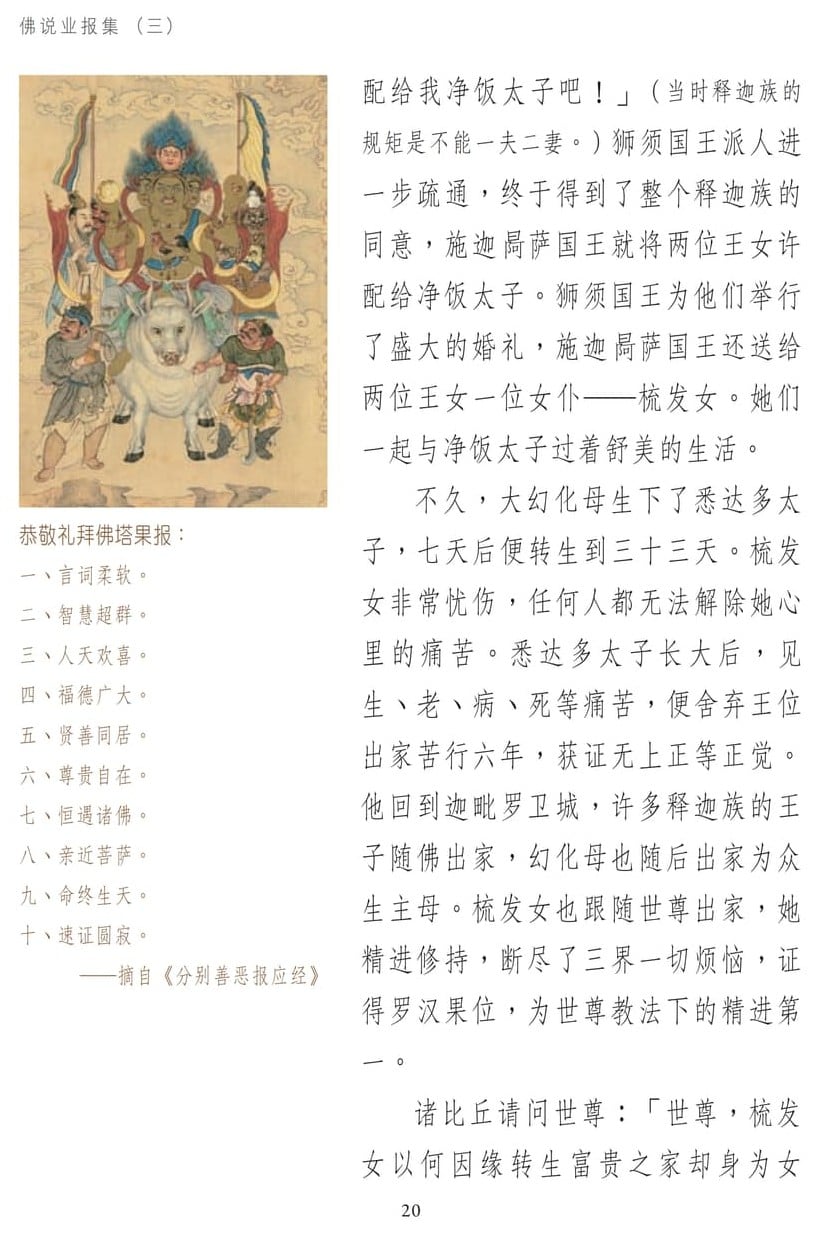 佛说业报集（三）
恭敬礼拜佛塔果报：
一、言词柔软。
二、智慧超群。
三、人天欢喜。
四、福德广大。
五、贤善同居。
六、尊贵自在。
七、恒遇诸佛。
八、亲近菩萨。
九、命终生天。
十、速证圆寂。
——摘自《分别善恶报应经》
配给我净饭太子吧！」（当时释迦族的
规矩是不能一夫二妻。）狮须国王派人进
一步疏通，终于得到了整个释迦族的
同意，施迦咼萨国王就将两位王女许
配给净饭太子。狮须国王为他们举行
了盛大的婚礼，施迦咼萨国王还送给
两位王女一位女仆——梳发女。她们
一起与净饭太子过着舒美的生活。
不久，大幻化母生下了悉达多太
子，七天后便转生到三十三天。梳发
女非常忧伤，任何人都无法解除她心
里的痛苦。悉达多太子长大后，见
生、老、病、死等痛苦，便舍弃王位
出家苦行六年，获证无上正等正觉。
他回到迦毗罗卫城，许多释迦族的王
子随佛出家，幻化母也随后出家为众
生主母。梳发女也跟随世尊出家，她
精进修持，断尽了三界一切烦恼，证
得罗汉果位，为世尊教法下的精进第
一。
诸比丘请问世尊：「世尊，梳发
女以何因缘转生富贵之家却身为女
20